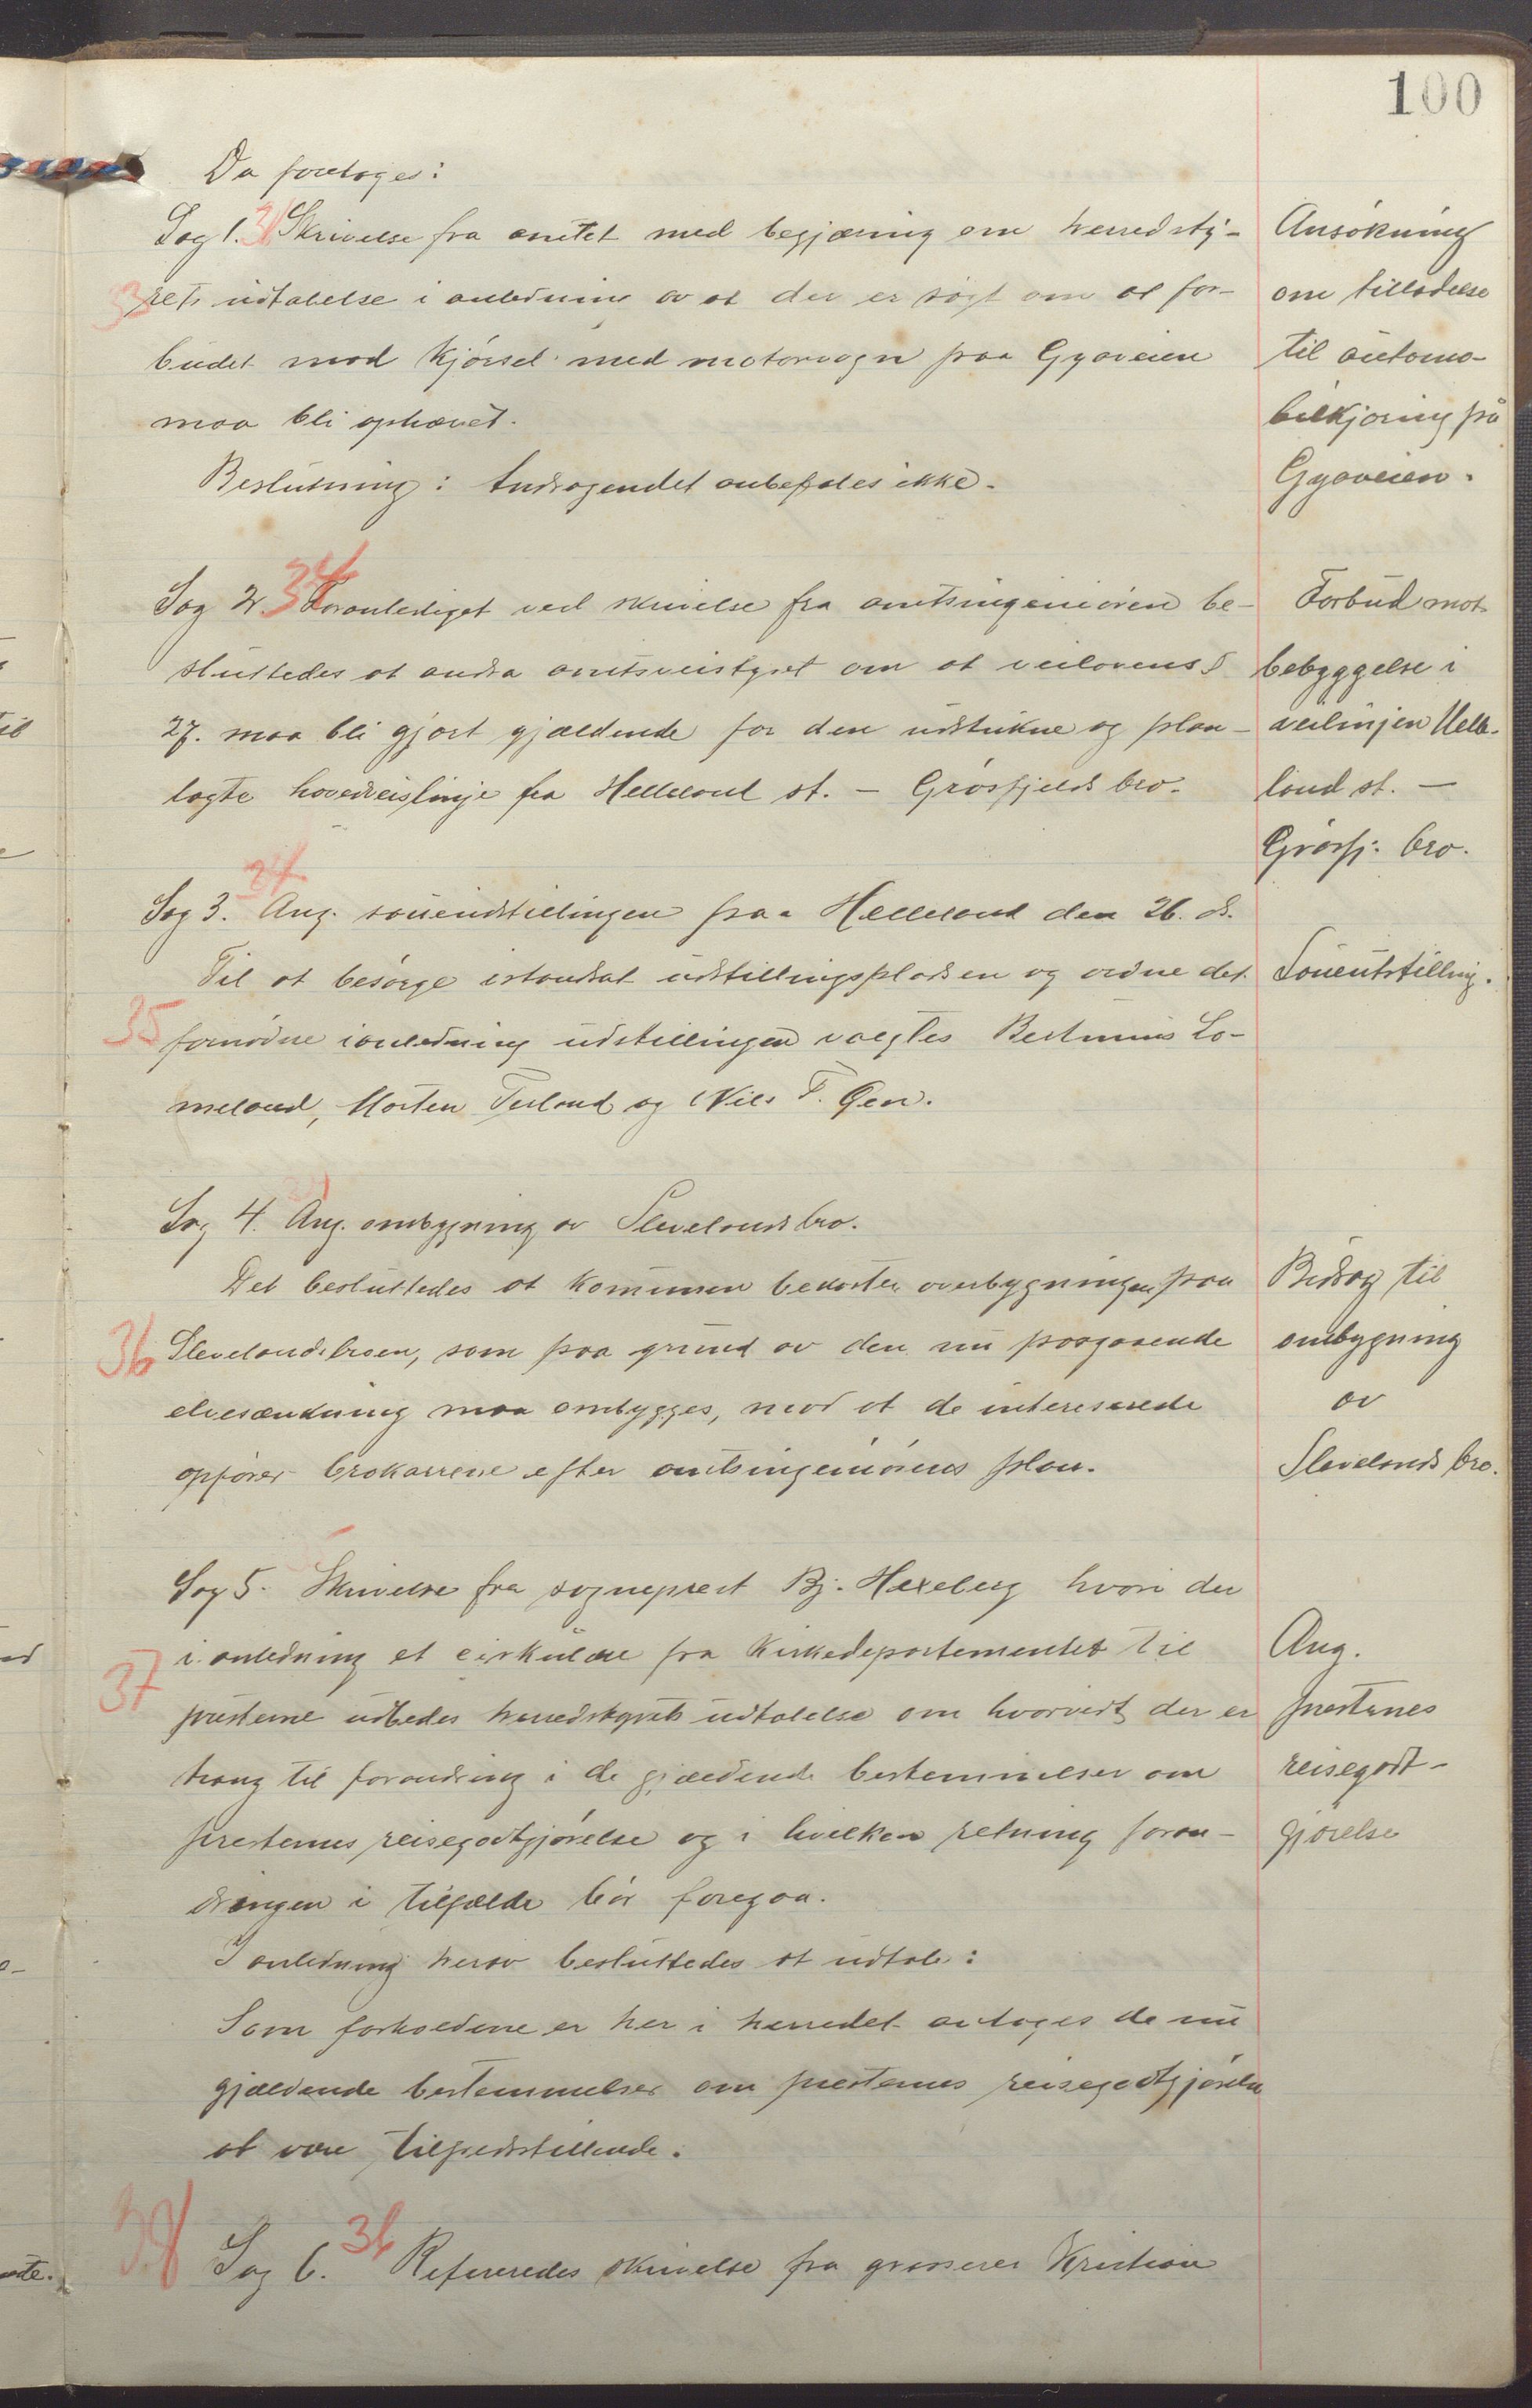 100
Da foretoges:
Sag 1. Skrivelse fra amtet med begjæring om herredsty-
rets udtalelse i anledning av at der er søgt om at for-
budet mod kjørsel med motorvogn paa Gyaveien
maa bli ophævet.
Beslutning: Andragendet anbefales ikke.
Ansøkning
om tilladelse
til automo-
bilkjøring på
Gyaveien.
Sag 2. 34 Foranlediget ved skrivelse fra amtsingeniøren be-
sluttedes at andra amtsveistyret om at veilovens §
27. maa bli gjort gjældende for den udstukne og plan-
lagte hovedveislinje fra Helleland st. – Grøsfjelds bro.
Forbud mot
bebyggelse i
veilinjen Helle-
land st. –
Grøsfj. bro.
Sag 3. Ang. saueudstillingen paa Helleland den 26. ds.
Til at besørge istandsat udstillingspladsen og ordne det
35 fornødne i anledning udstillingen valgtes Bertinius Lo-
meland, Morten Terland og Nils T. Øen.
Saueutstilling.
Sag 4. Ang. ombygning av Slevelands bro.
Det besluttedes at kommunen bekoster overbygningen paa
36 Slevelandsbroen, som paa grund av den nu paagaaende
elvesænkning maa ombygges, mod at de interesserede
opfører brokarrene efter amtsingeniørens plan.
Bidrag til
ombygning
av
Slevelands bro.
Sag 5. Skrivelse fra sogneprest Bj. Hexeberg hvori der
i anledning et cirkulære fra Kirkedepartementet til
37 presterne udbedes herredstyrets udtalelse om hvorvidt der er
trang til forandring i de gjældende bestemmelser om
presternes reisegodtgjørelse og i hvilken retning foran-
dringen i tilfælde bør foregaa.
I anledning herav besluttedes at udtale:
Som forholdene er her i herredet antages de nu
gjældende bestemmelser om presternes reisegodtgjørelse
at være tilfredsstillende.
Ang.
presternes
reisegodt-
gjørelse
38 Sag 6. 36 Refereredes skrivelse fra grosserer Kristian